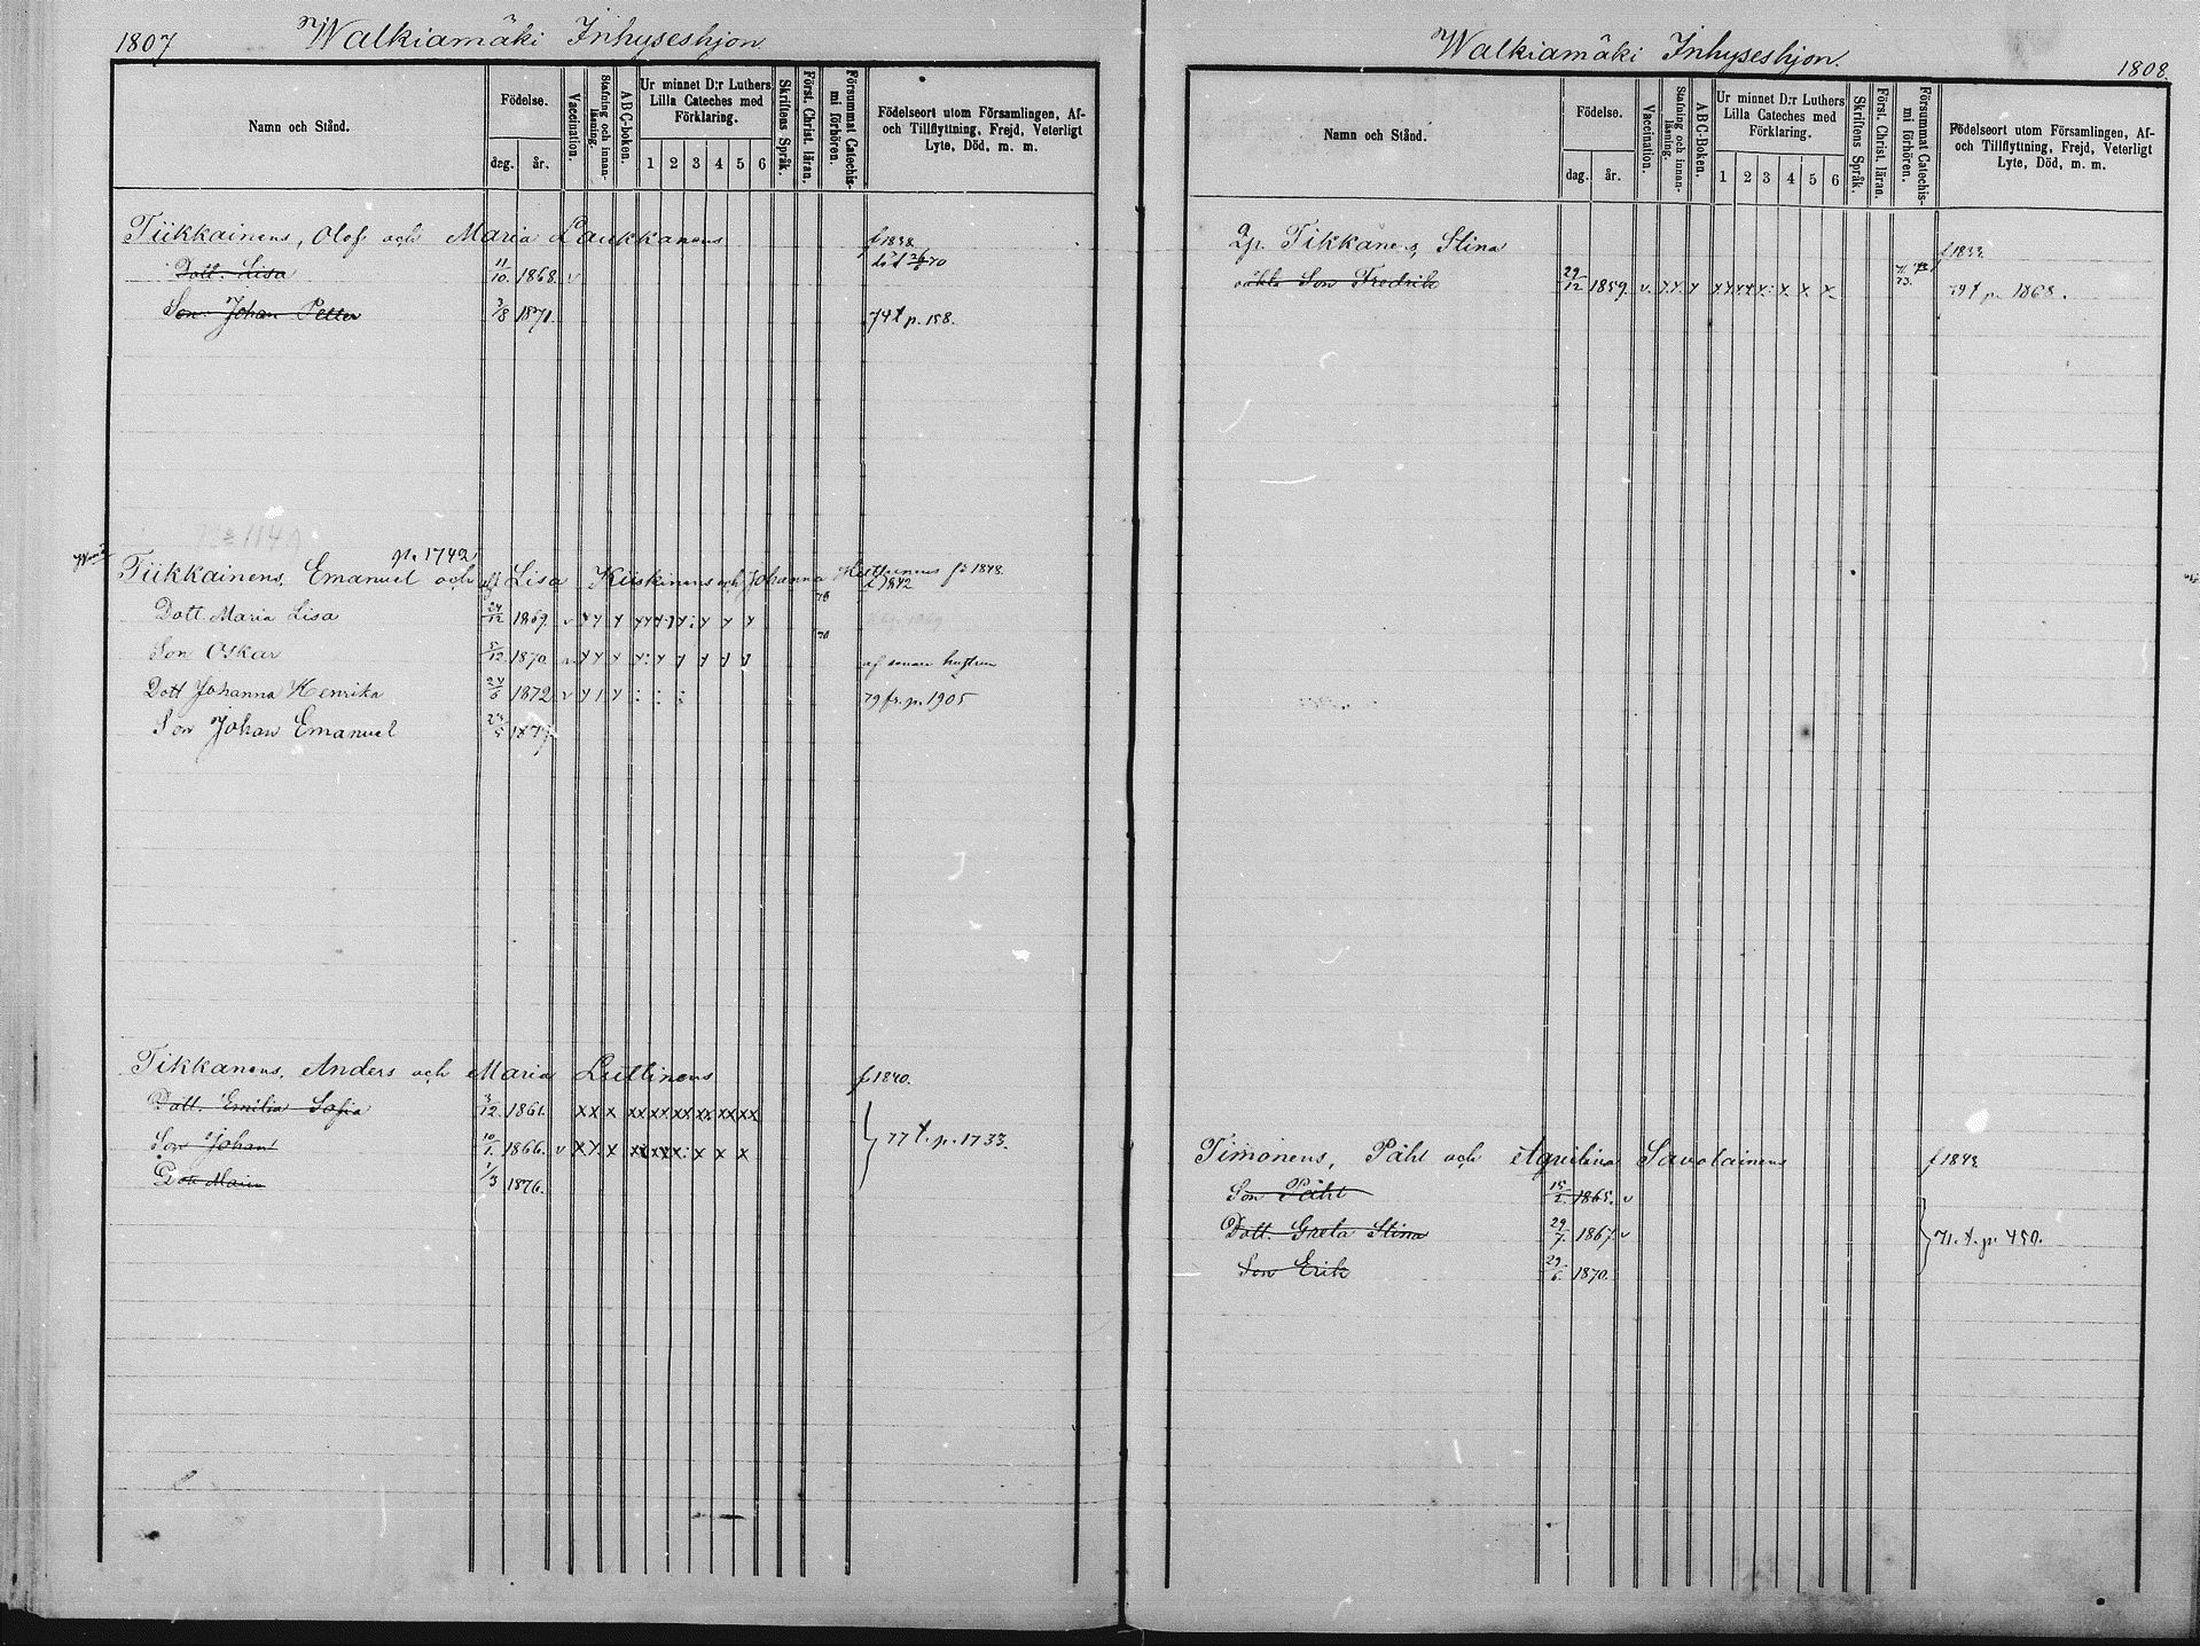 1807 Walkiamäki Inhyseshjon.
Namn och Stånd.
Födelse.
dag. år.
Vaccination.
Stafning och innanläsning.
ABC-boken.
Ur minnet D:r Luthers Lilla Cateches med Förklaring.
1 2 3 4 5 6
Skriftens Språk.
Först. Christ. läran.
Försummat Catechismi förhören.
Födelseort utom Församlingen, Af- och Tillflyttning, Frejd, Veterligt Lyte, Död, m. m.
Tiikkainens, Olof och Maria Laukkanens f 1838
Dott. Lisa 11/10 1868. v död 70
Son Johan Petter 3/8 1871. 74 t p. 158.
p. 1742
Tiikkainens, Emanuel och Lisa Kiiskinens och Johanna f 1848. 1842
Dott. Maria Lisa 24/12 1869. v
76
Son Oskar 5/12 1870. af senare
Dott Johanna Henrika 24/6 1872 v 79 fr. p. 1905
Son Johan Emanuel
Tikkanens, Anders och Maria Luttinens f 1840.
Dott. Emilia Sofia 3/12 1861. xx x xx xx xx xx xx xx
Son Johan 10/1. 1866. v 77 t. p. 1733.
Dott Maria 1/3 1876.
Walkiamäki Inhyseshjon. 1808.
Namn och Stånd.
Födelse.
dag. år.
Vaccination.
Stafning och innanläsning.
ABC-Boken.
Ur minnet D:r Luthers Lilla Cateches med Förklaring.
1 2 3 4 5 6
Skriftens Språk.
Först. Christ. läran.
Försummat Catechismi förhören.
Födelseort utom Församlingen, Af- och Tillflyttning, Frejd, Veterligt Lyte, Död, m. m.
Qp. Tikkanens, Stina f 1833
oäkta Son Fredrik 29/12 1859. v. 73. 79 t p. 1868.
Timonens, Påhl och Aqvilina Savolainens f 1843
Son Påhl 15/2. 1865. v
Dott. Greta Stina 29/7. 1867. v 71. t. p. 450.
Son Erik 29/6. 1870.